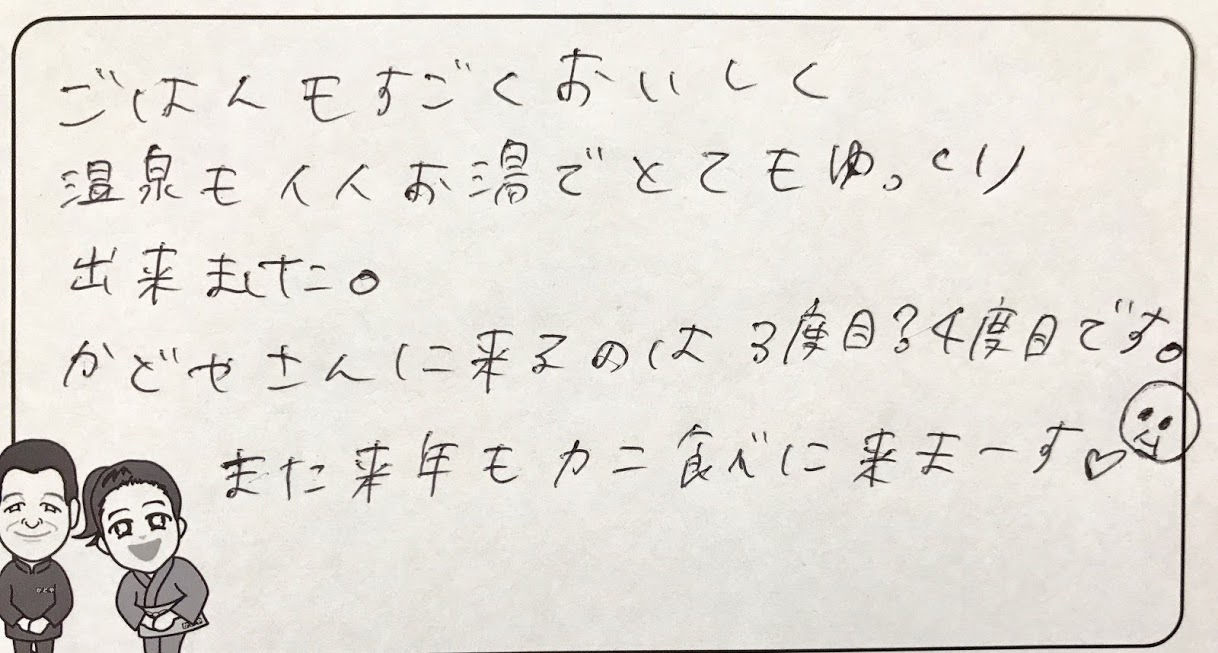 ごはんもすごくおいしく
温泉もイイお湯でとてもゆっくり
出来ました。
かどやさんに来るのは3度目?4度目です。
また来年もカニ食べに来まーす♡
かどや